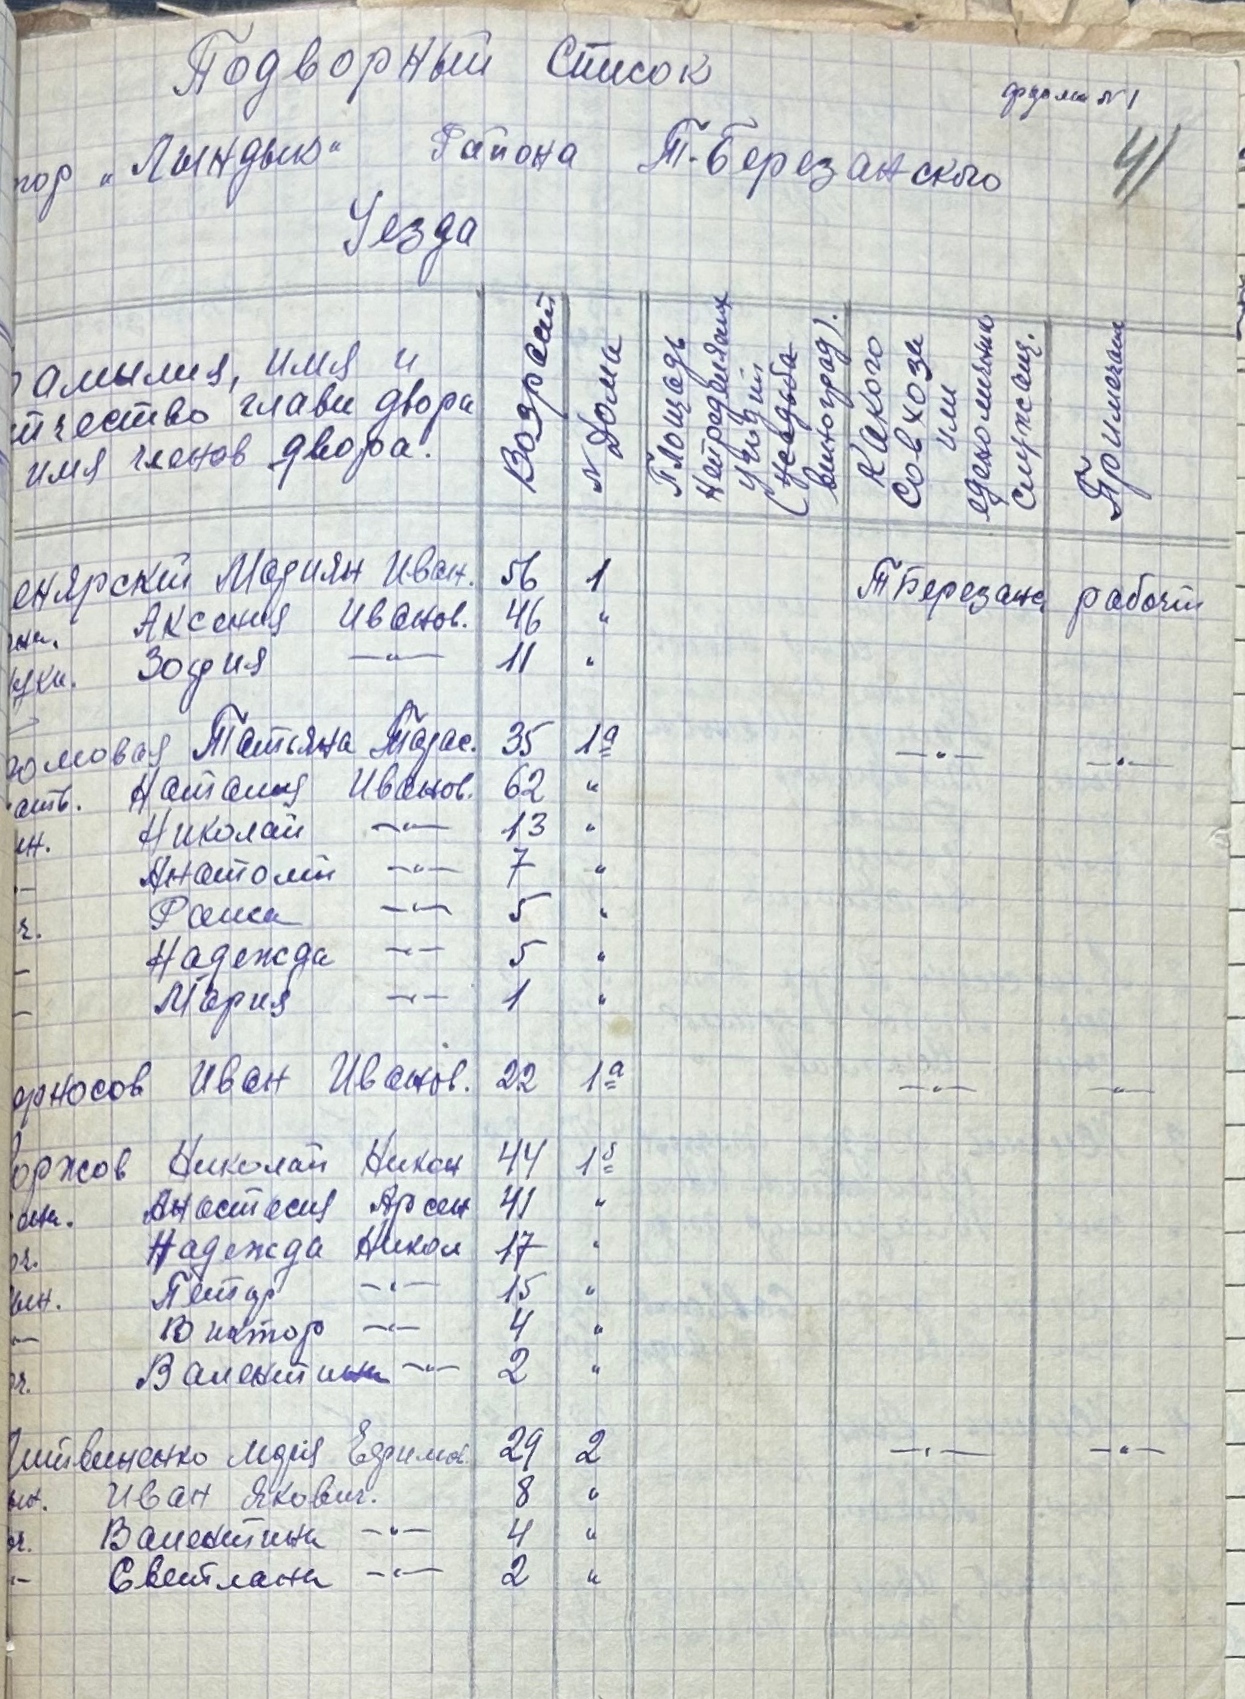 Подворный Список
форма №1
тор „Лындык“ Района Т-Березанского
41
Уезда
амылия, имя и
тчество главы двора
имя членов двора.
Возраст
№ Дома
Площадь
Неподелимых
угодий
(усадьба
виноград).
Какого
Совхоза
или
единоличник
служащ.
Примечан
енярский Мадиян Иван. 56 1 Т Березанс рабочий
жн. Аксения Иванов. 46 "
учки. Зофия —"— 11 "
омовая Татьяна Тарас. 35 1а —"— —"—
ать. Наталия Иванов. 62 "
н. Николай —"— 13 "
— Анатолий —"— 7 "
ч. Раиса —"— 5 "
— Надежда —"— 5 "
— Мария —"— 1 "
рносов Иван Иванов. 22 1а —"— —"—
оржов Николай Никон 44 1б
жн. Анастасия Арсен 41 "
оч. Надежда Никол 17 "
ын. Петр —"— 15 "
— Виктор —"— 4 "
оч. Валентина —"— 2 "
итвиненко Мария Ефимов 29 2 —"— —"—
ын. Иван Якович. 8 "
оч. Валентина —"— 4 "
—"— Светлана —"— 2 "